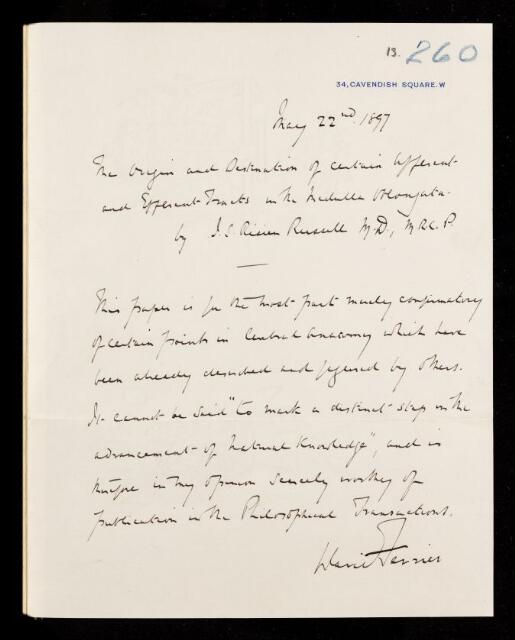 13. 260
34, CAVENDISH SQUARE. W
May 22nd. 1897
The Origin and Destination of certain Afferent
and Efferent Tracts in the Medulla Oblongata.
by J. S. Risien Russell M.D., M.R.C.P.
This paper is for the most part merely confirmatory
of certain points in Central Anatomy which have
been already described and figured by others.
It cannot be said "to mark a distinct step in the
advancement of Natural Knowledge", and is
therefore in my opinion scarcely worthy of
publication in the Philosophical Transactions.
David Ferrier